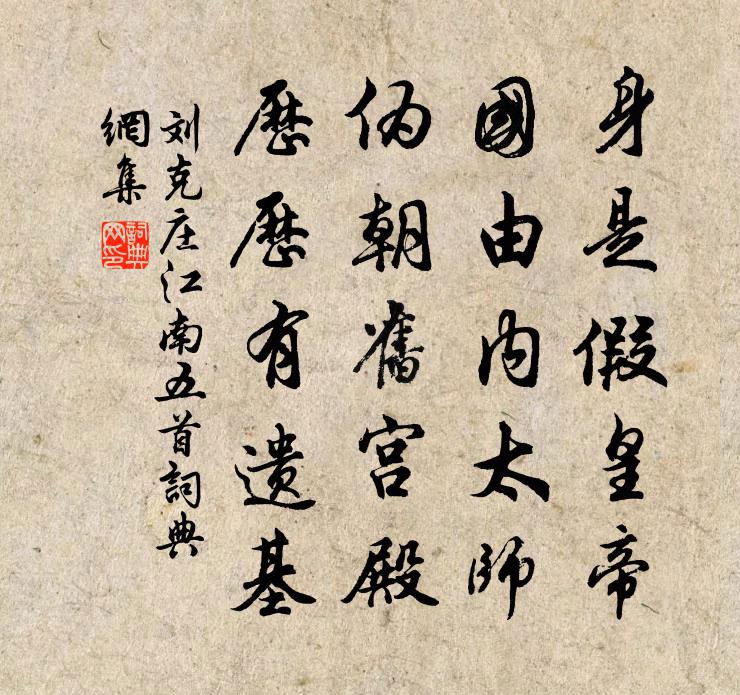 身是假皇帝
國由内太师
伪朝舊宫殿
歷歷有遗基
刘克庄江南五首詞典
網集
詞典
网印